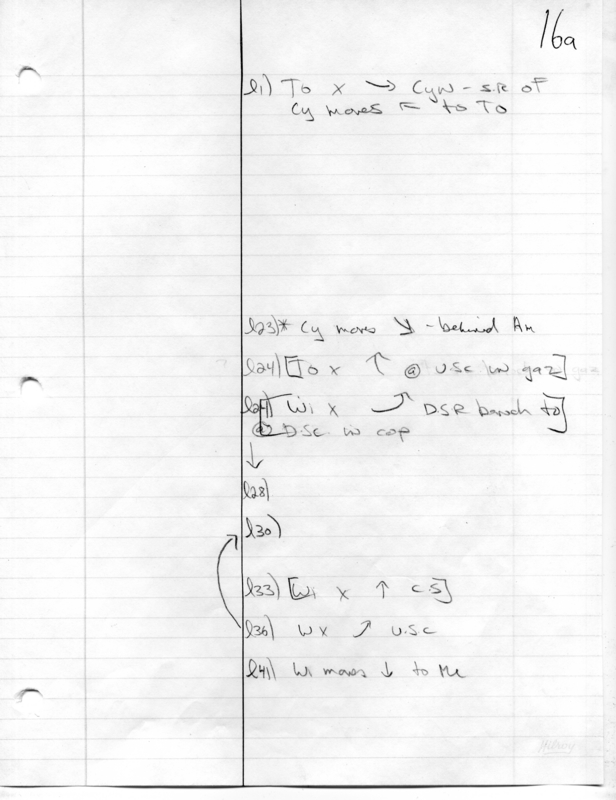 16a
l1) To x → CyW - S.R of
Cy moves ← to To
l23)* Cy moves ↘ - behind An
l24) [To x ↑ @ U.S.C in gaz]
Wi x ⤴ DSR bench to]
@ D.S.C. in cop
↓
l28)
l30)
l33) [Wi x ↑ C.S]
l36) W x ↗ U.S.C
l41) Wi moves ↓ to Me